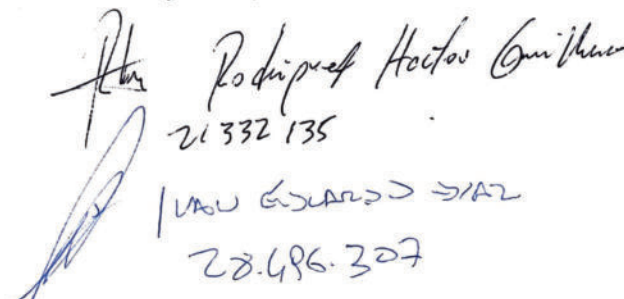 Rodriguez Hector Guillermo
21332135
IVAN EDUARDO DIAZ
28.496.307